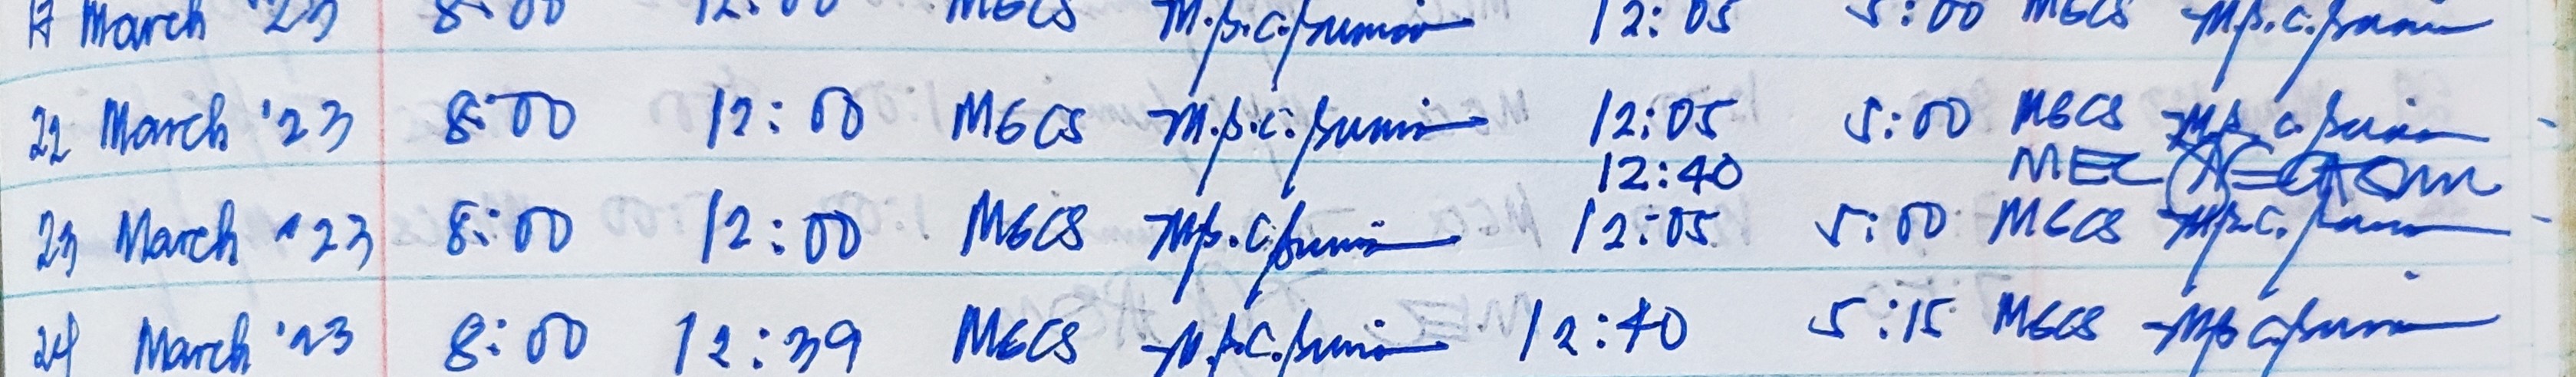 17 March '23 8:00 12:00 MGCS 12:05 5:00 MGCS
22 March '23 8:00 12:00 MGCS 12:05 5:00 MGCS
12:40 MEC
23 March '23 8:00 12:00 MGCS 12:05 5:00 MGCS
24 March '23 8:00 12:39 MGCS 12:40 5:15 MGCS